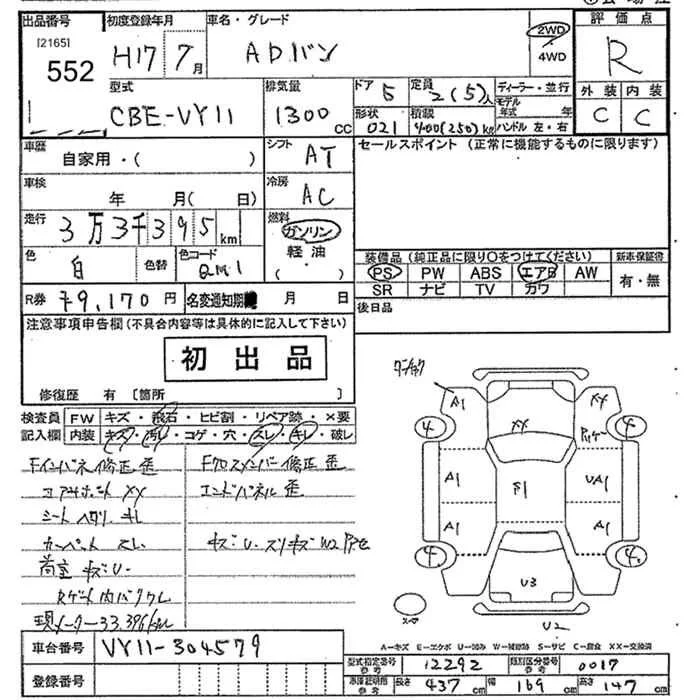 出品番号 初度登録年月 車名・グレード 評価点
[2165] 552 H17 7月 ADバン 2WD 4WD R
型式 排気量 ドア 5 定員 2(5)人 ディーラー・並行 外装 内装
CBE-VY11 1300 CC 形状 021 積載 400(250)kg モデル年式 年 ハンドル 左・右 C C
車歴 自家用・( ) シフト AT セールスポイント (正常に機能するものに限ります)
車検 年 月( 日) 冷房 AC
走行 3万3千395km 燃料 ガソリン 軽油 ( )
色 白 色替 色コード QM1
装備品(純正品に限り〇をつけてください) 新車保証書
PS PW ABS エアB AW 有・無
SR ナビ TV カワ
R券 ¥9,170円 名変通知期 月 日 後日品
注意事項申告欄(不具合内容等は具体的に記入して下さい)
初出品
修復歴 有 [箇所 ]
検査員記入欄 FW キズ・飛石・ヒビ割・リペア跡・×要
内装 キズ・汚レ・コゲ・穴・スレ・キレ・破レ
Fインパネ修正 歪 Fクロスメンバー修正 歪
コアサポート XX エンドパネル 歪
シート ヘタリ キレ
カーペット スレ キズU・スリキズW2
荷室 キズU・
現メーター33,396km
A1 XX XX
4 4
A1 F1 UA1
A1 A1
4 4
U3
U2
スペア
A-キズ E-エクボ U-凹み W-補修跡 S-サビ C-腐食 XX-交換済
車台番号 VY11-304579
登録番号
型式指定番号 12292 類別区分番号 0017
車庫証明用参考 長さ 437cm 幅 169cm 高さ 147cm